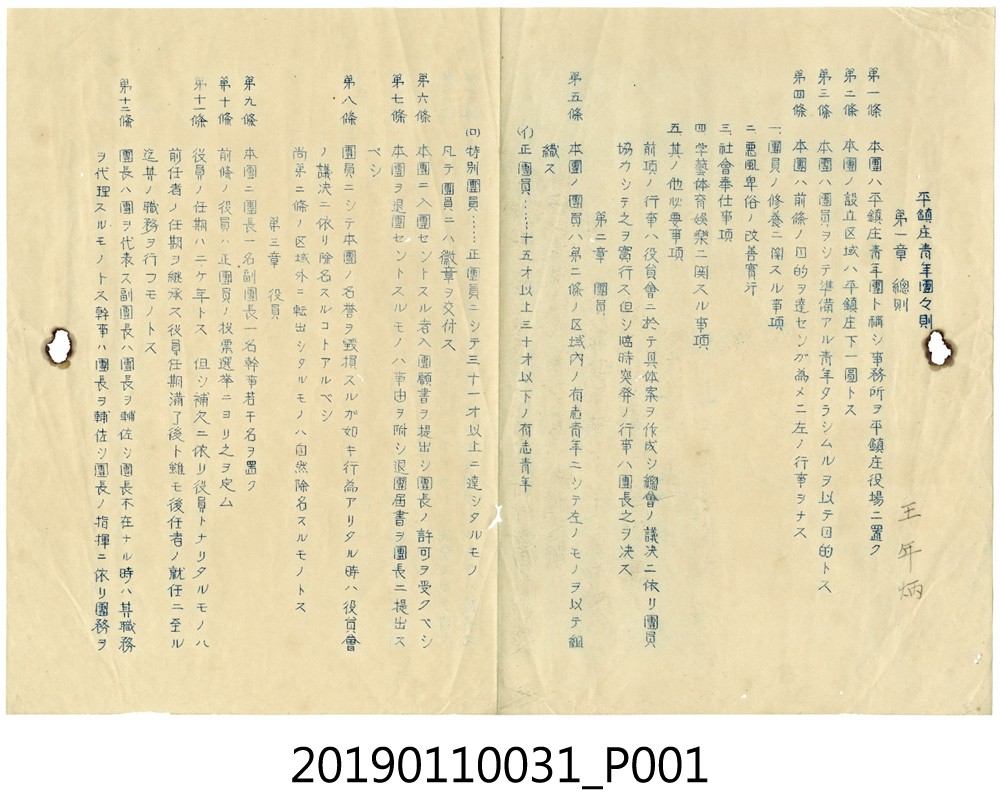 平鎮庄青年團々則
王年炳
第一章 總則
第一條 本團ハ平鎮庄青年團ト稱シ事務所ヲ平鎮庄役場ニ置ク
第二條 本團ノ設立区域ハ平鎮庄下一圓トス
第三條 本團ハ團員ヲシテ準備アル青年タラシムルヲ以テ目的トス
第四條 本團ハ前條ノ目的ヲ達センガ為メニ左ノ行事ヲナス
一、團員ノ修養ニ関スル事項
二、悪風卑俗ノ改善實行
三、社會奉仕事項
四、学藝体育娯樂ニ関スル事項
五、其ノ他必要事項
前項ノ行事ハ役員會ニ於テ具体案ヲ作成シ總會ノ議決ニ依リ團員
協力シテ之ヲ實行ス但シ臨時突発ノ行事ハ團長之ヲ决ス
第二章 團員
第五條 本團ノ團員ハ第二條ノ区域内ノ有志青年ニシテ左ノモノヲ以テ組
織ス
(イ)正團員……十五才以上三十才以下ノ有志青年
(ロ)特別團員……正團員ニシテ三十一才以上ニ達シタルモノ
凡テ團員ニハ徽章ヲ交付ス
第六條 本團ニ入團セントスル者入團願書ヲ提出シ團長ノ許可ヲ受クベシ
第七條 本團ヲ退團セントスルモノハ事由ヲ附シ退團届書ヲ團長ニ提出ス
ベシ
第八條 團員ニシテ本團ノ名誉ヲ毀損スルガ如キ行為アリタル時ハ役員會
ノ議決ニ依リ除名スルコトアルベシ
尚第二條ノ区域外ニ転出シタルモノハ自然除名スルモノトス
第三章 役員
第九條 本團ニ團長一名副團長一名幹事若干名ヲ置ク
第十條 前條ノ役員ハ正團員ノ投票選挙ニヨリ之ヲ定ム
第十一條 役員ノ任期ハ二ケ年トス 但シ補欠ニ依リ役員トナリタルモノハ
前任者ノ任期ヲ継承ス役員任期満了後ト雖モ後任者ノ就任ニ至ル
迄其ノ職務ヲ行フモノトス
第十二條 團長ハ團ヲ代表ス副團長ハ團長ヲ輔佐シ團長不在ナル時ハ其職務
ヲ代理スルモノトス幹事ハ團長ヲ輔佐シ團長ノ指揮ニ依リ團務ヲ
20190110031_P001